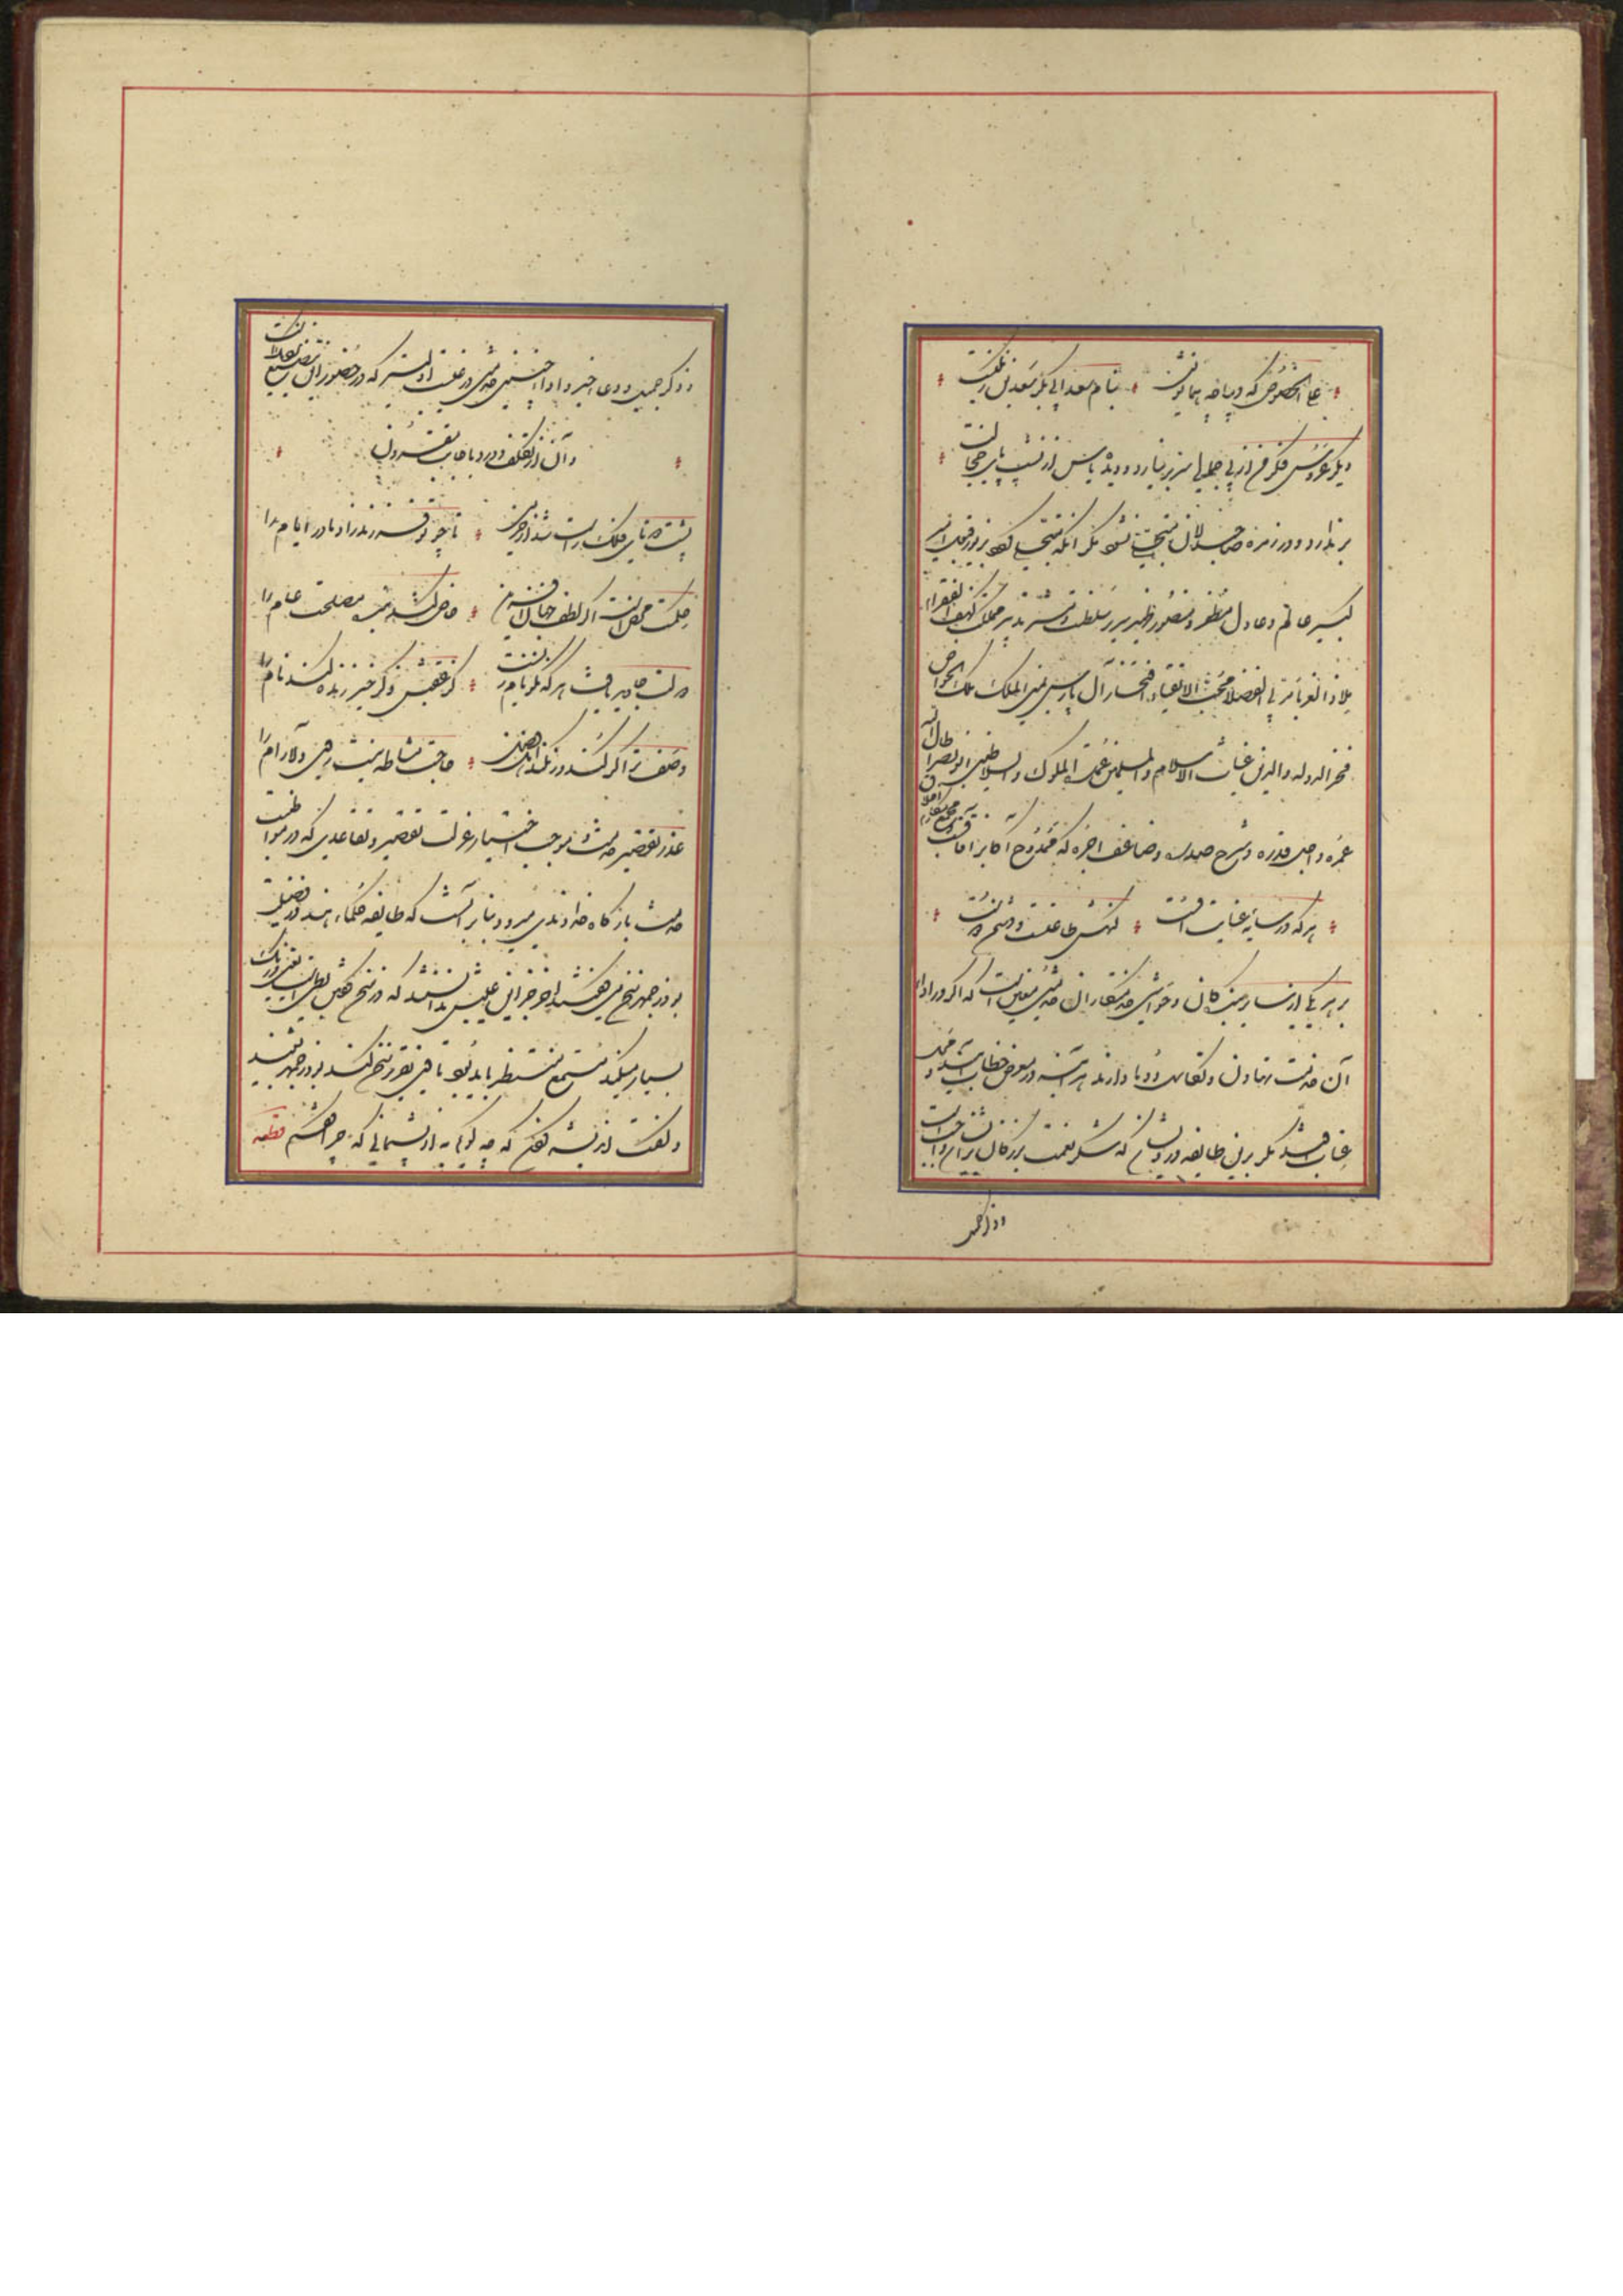 علی الخصوص که دیباچه همایونش بنام سعد ابی بکر سعد بن زنگیست
دیگر عروس فکر من از بی جمالی سر برنیارد و دیده یاس از پشت پای خجالت
بر ندارد و در زمره صاحبدلان متجلی نشود مگر آنکه متحلی گردد بزیور قبول امیر
کبیر عالم و عادل مظفر و منصور ظهیر سریر سلطنت و مشیر تدبیر مملکت کهف الفقراء
ملاذ الغربا مربی الفضلا محب الاتقیا افتخار آل پارس یمین الملک ملک الخواص
فخر الدوله والدین غیاث الاسلام والمسلمین عمدة الملوک والسلاطین ابوبکر بن ابونصر اطال الله
عمره و اجل قدره و شرح صدره و ضاعف اجره که ممدوح اکابر آفاقست و مجموع مکارم اخلاق
هرکه در سایه عنایت اوست گنهش طاعتست و دشمن دوست
بر هر یکی از سایر بندگان و حواشی خدمتکاران خدمتی معین است که اگر در ادای
آن خدمت تهاون و تکاسل روا دارند هرآینه در معرض خطاب آیند و محل
عتاب باشند مگر برین طایفه درویشان که شکر نعمت بزرگان برایشان واجبست
و ذکر جمیل و دعای خیر و ادای چنین خدمتی در غیبت اولیتر که در حضور این بتصنع نزدیکست
و آن از تکلف دور و باجابت مقرون
پشت دوتای فلک راست شد از خرمی تا چو تو فرزند زاد مادر ایام را
حکمت محض است اگر لطف جهان آفرین خاص کند بنده مصلحت عام را
دولت جاوید یافت هرکه نکونام زیست کز عقبش ذکر خیر زنده کند نام را
وصف ترا گر کنند ور نکنند اهل فضل حاجت مشاطه نیست روی دلارام را
عذر تقصیر خدمت و موجب اختیار عزلت تقصیر و تقاعدی که در مواظبت
خدمت بارگاه خداوندی میرود بنابر آنست که طایفه حکماء هند در فضیلت
بوزرجمهر سخن می گفتند آخر جز این عیبش ندانستند که در سخن گفتن بطی است یعنی درنگ
بسیار میکند مستمع منتظر باید بود تا وی تقریر سخن کند بوزرجمهر بشنید
و گفت اندیشه کردن که چه گویم به از پشیمانی که چرا گفتم قطعه
و ذکر جمیل